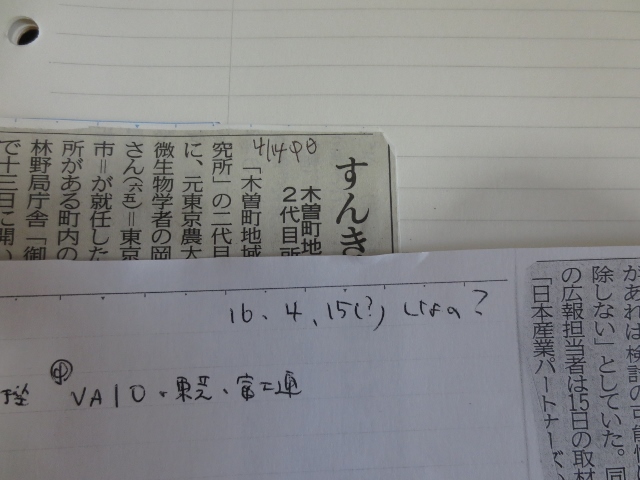 4/14中日
すんき
木曽町地
2代目所
「木曽町地域
究所」の二代目
に、元東京農大
微生物学者の岡
さん(六五)=東京
市=が就任した
所がある町内の
林野局庁舎「御
で十三日に開い
16、4、15(?)
中
VAIO・東芝・富士通
があれば検討の可能性は
除しない」としていた。同
の広報担当者は15日の取材
「日本産業パートナーズ